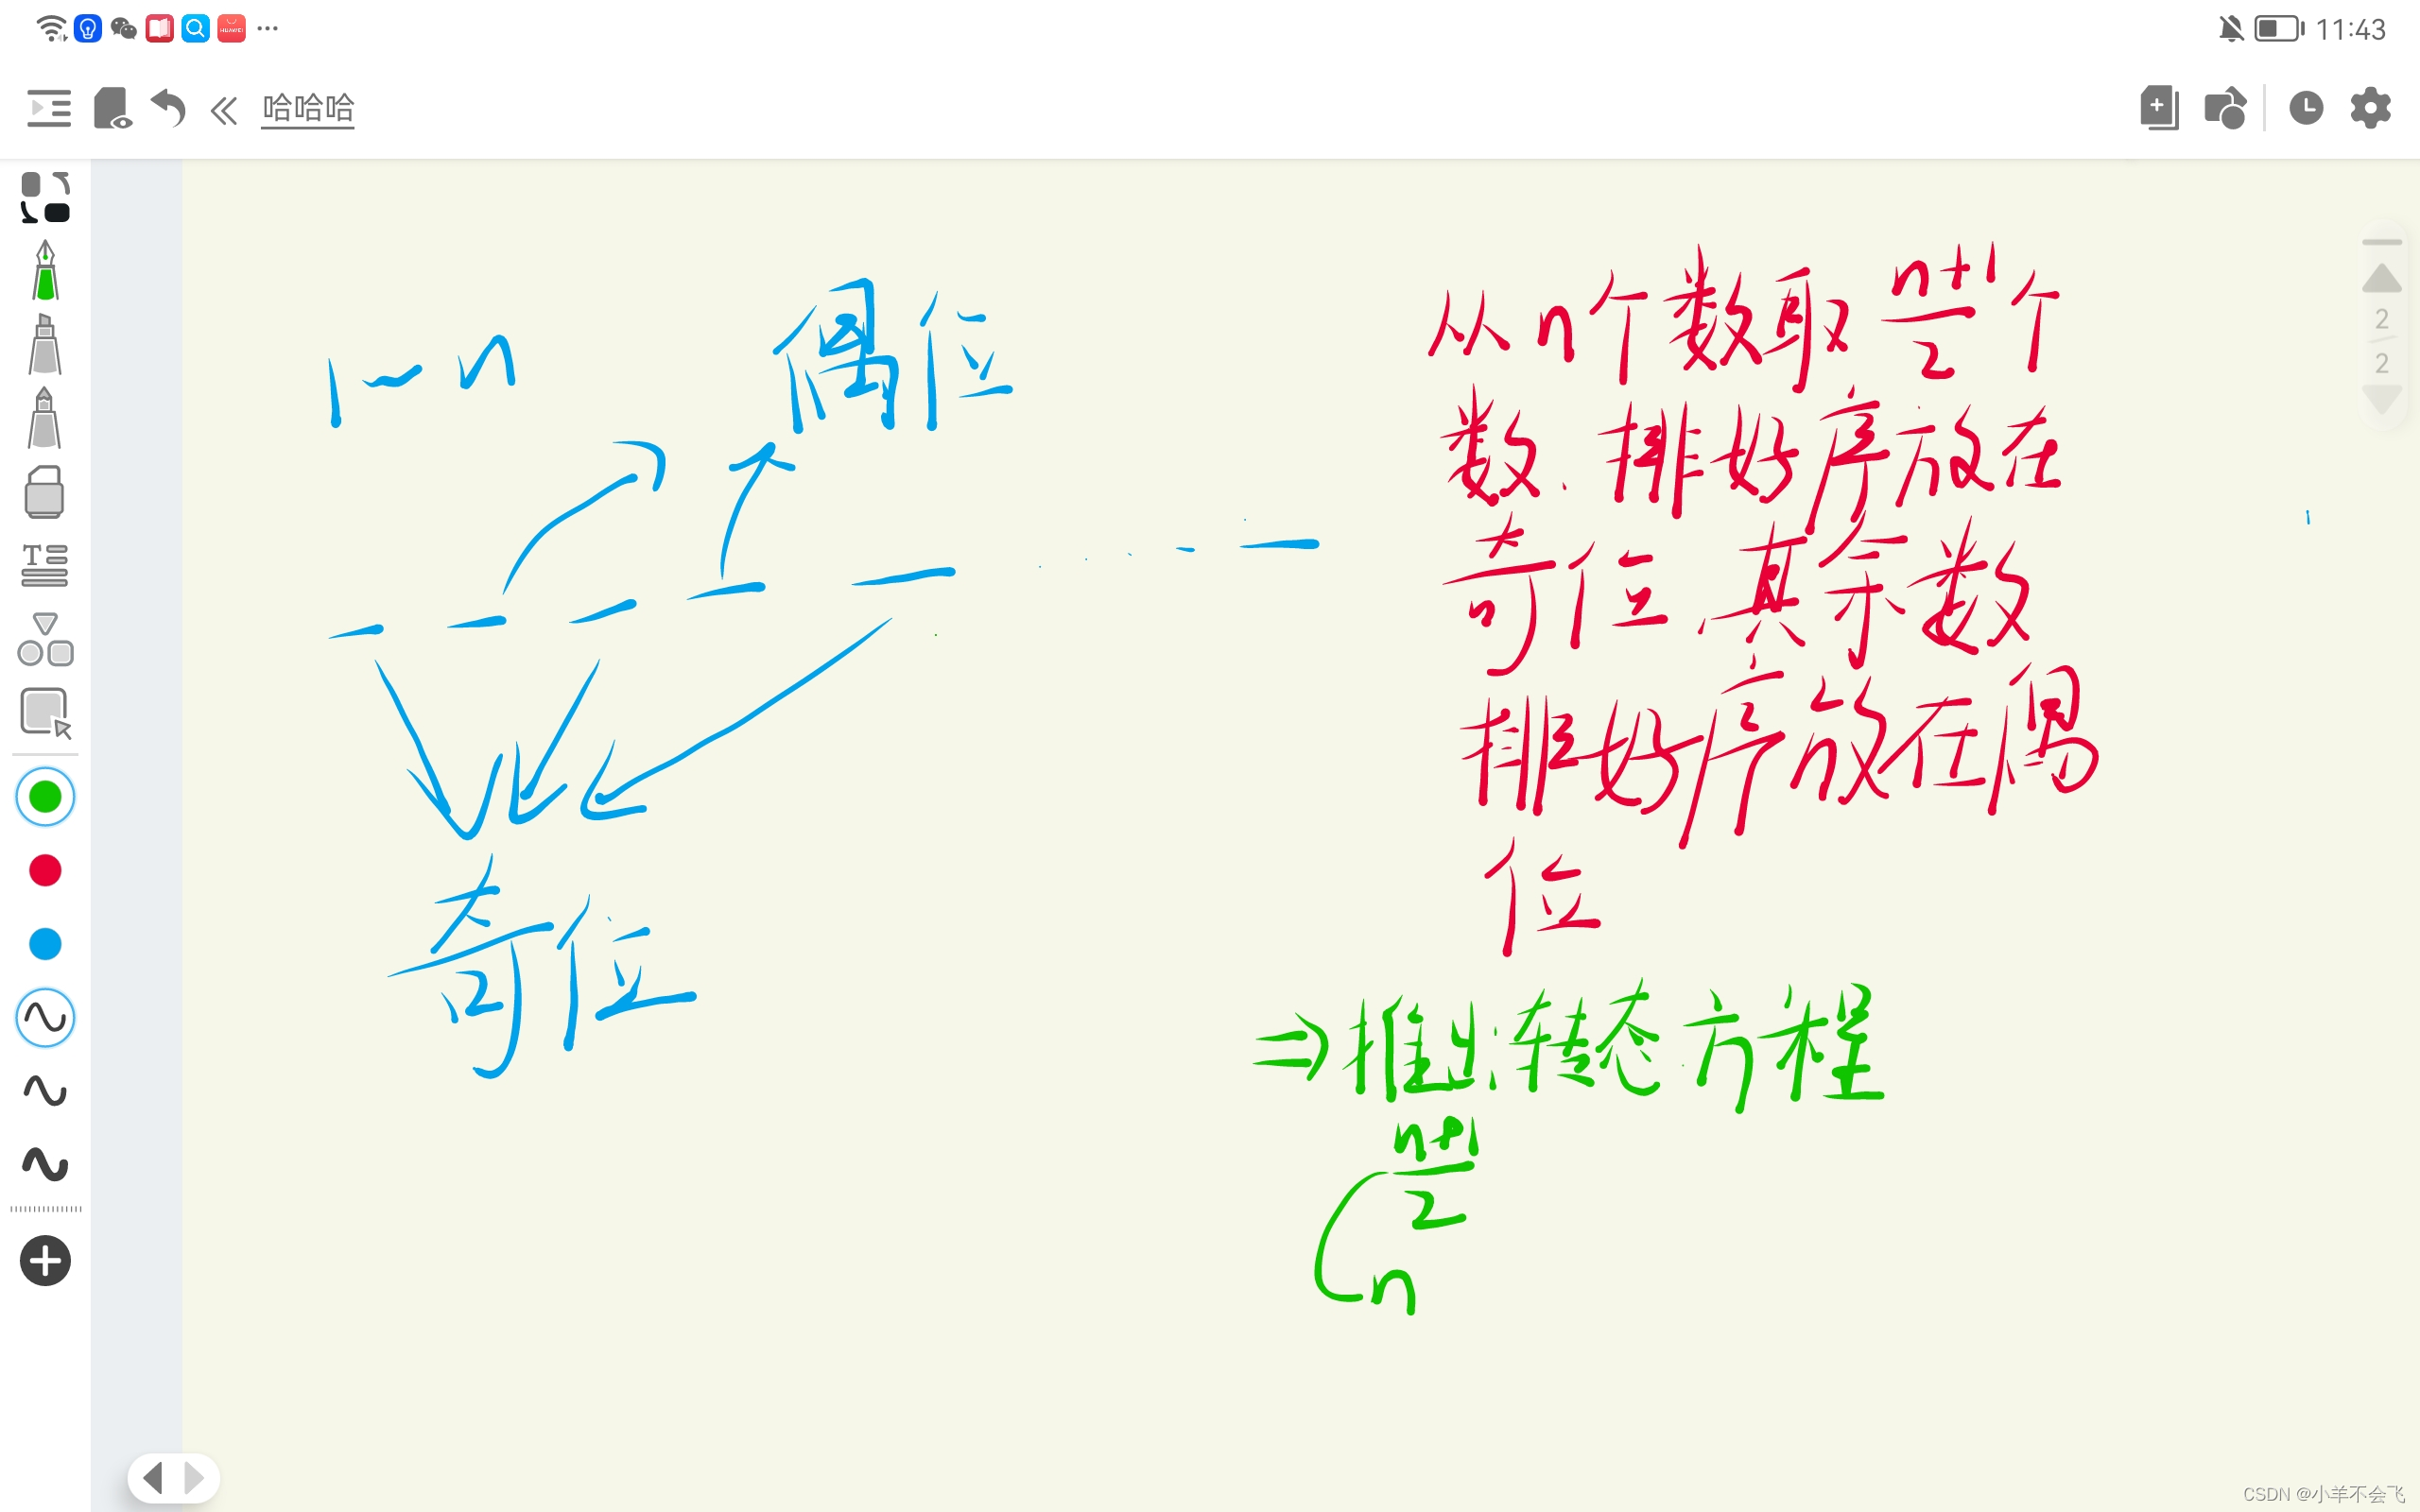 11:43
哈哈哈
1~n
偶位
奇位
从n个数取 n+1/2 个
数.排好序放在
奇位,其余数
排好序放在偶
位
⇒推出:转态方程
C n+1/2
n
2
2
CSDN @小羊不会飞